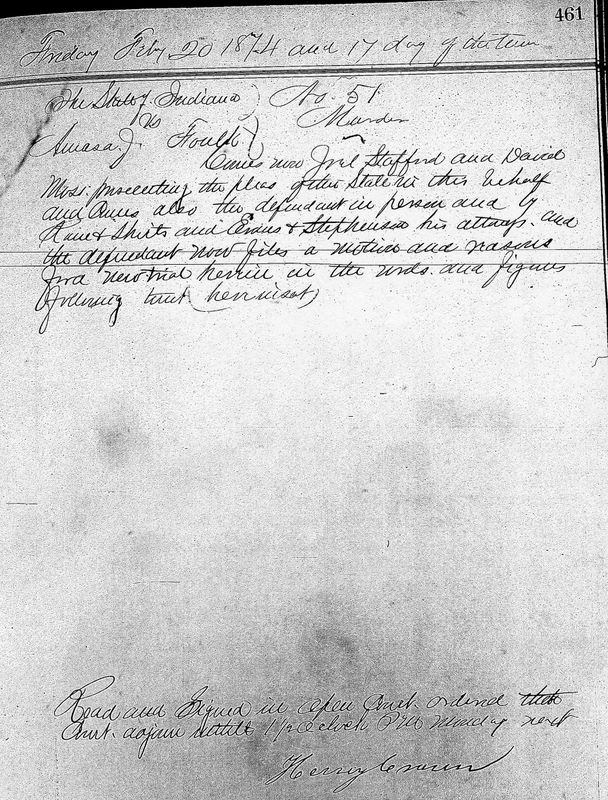 461
Friday Feby 20 1874 and 17 day of the term
The State of Indiana ) No. 51
vs ) Murder
Amasa J. Foulk )
Comes now Joel Stafford and David
Moss prosecuting the pleas of the State in this behalf
and Comes also the defendant in person and by
Kane & Shirts and Evans & Stephenson his attorneys. and
the defendant now files a motion and reasons
for a new trial herein in the words and figures
following towit (here insert)
Read and Signed in open Court. ordered that
Court. adjourn untill 1½ Oclock PM Monday next
Hervey Craven